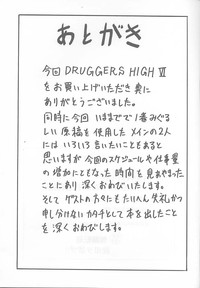 あとがき
今回 DRUGGERS HIGH Ⅵ
をお買い上げいただき真に
ありがとうございました。
同時に今回 いままでで1番みぐる
しい原稿を使用したメインの2人
にはいろいろ言いたいこともあると
思いますが今回のスケジュールや仕事量
の増加にともなった時間を見あやまった
ことにより深くおわびいたします。
そしてゲストの方々にもたいへん失礼かつ
申し分けないカタチとして本を出したこと
を深くおわびします。